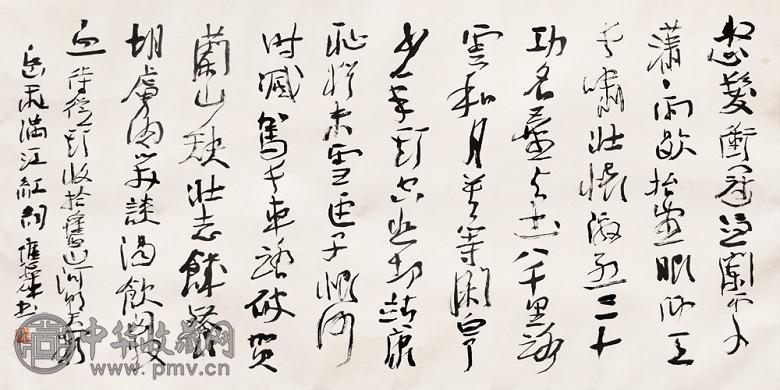 怒髮衝冠憑闌處
瀟瀟雨歇抬望眼仰天
長嘯壯懷激烈三十
功名塵與土八千里路
雲和月莫等閒白了
少年頭空悲切靖康
恥猶未雪臣子恨何
時滅駕長車踏破賀
蘭山缺壯志饑餐
胡虜肉笑談渴飲匈奴
血待從頭收拾舊山河朝天闕
岳飛滿江紅詞 書
中华收藏网
www.pmv.cn